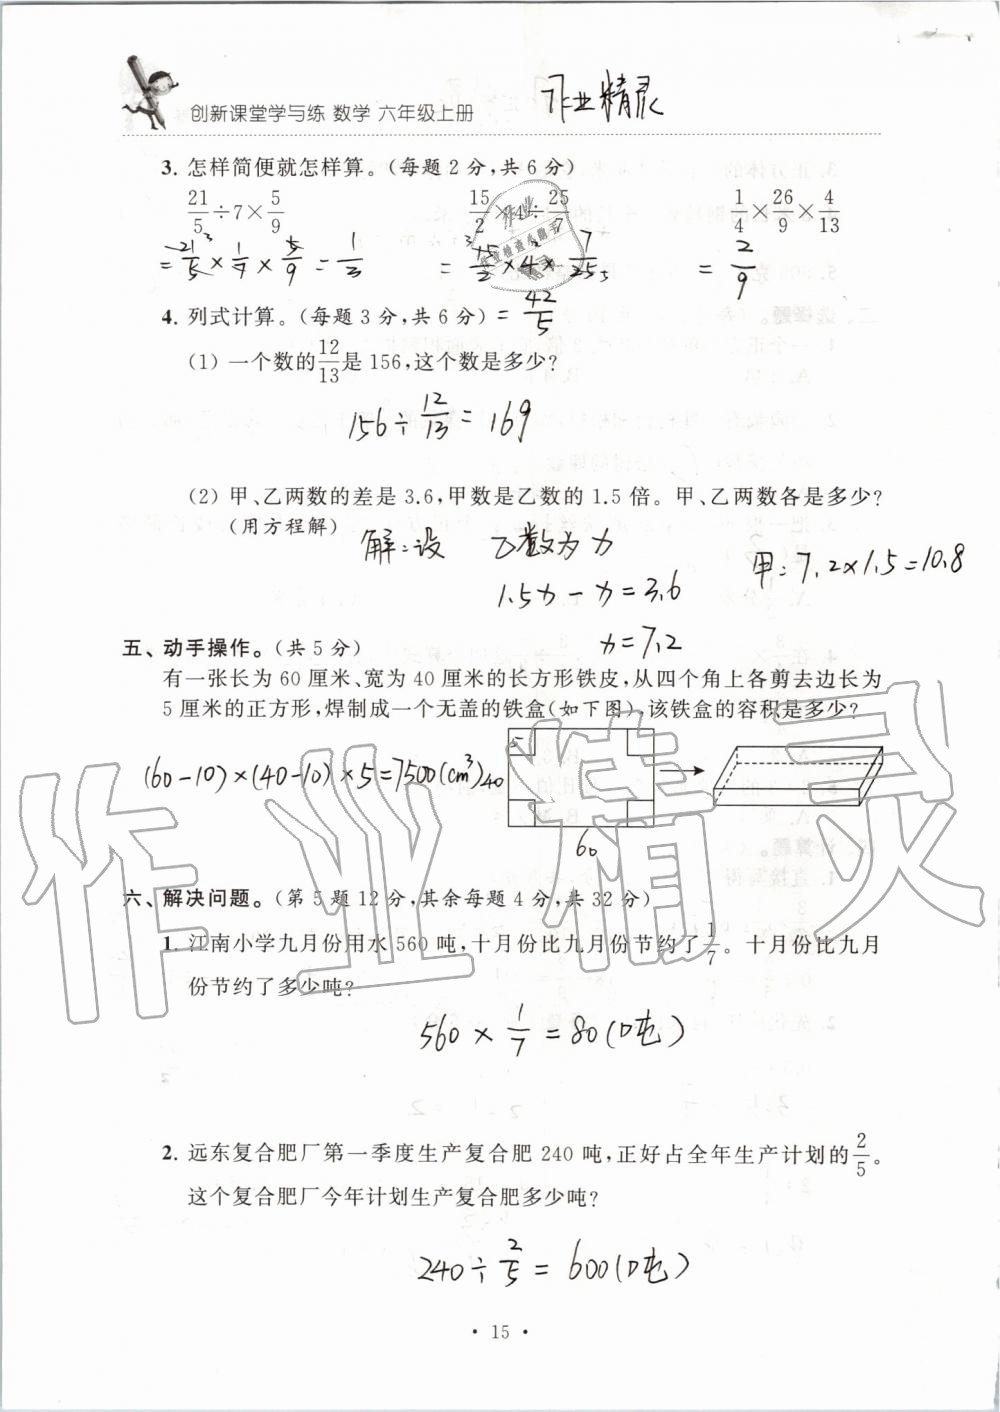 创新课堂学与练 数学 六年级上册
作业精灵
3. 怎样简便就怎样算。(每题2分,共6分)
21/5÷7×5/9 15/2×4÷25/7 1/4×26/9×4/13
=21/5×1/7×5/9=1/3 =15/2×4×7/25 =2/9
4. 列式计算。(每题3分,共6分) =42/5
(1) 一个数的12/13是156,这个数是多少?
156÷12/13=169
(2) 甲、乙两数的差是3.6,甲数是乙数的1.5倍。甲、乙两数各是多少?
(用方程解)
解:设 乙数为x
1.5x-x=3.6
x=7.2
甲:7.2×1.5=10.8
五、动手操作。(共5分)
有一张长为60厘米、宽为40厘米的长方形铁皮,从四个角上各剪去边长为
5厘米的正方形,焊制成一个无盖的铁盒(如下图),该铁盒的容积是多少?
(60-10)×(40-10)×5=7500(cm³)
5
40
60
六、解决问题。(第5题12分,其余每题4分,共32分)
1. 江南小学九月份用水560吨,十月份比九月份节约了1/7。十月份比九月
份节约了多少吨?
560×1/7=80(吨)
2. 远东复合肥厂第一季度生产复合肥240吨,正好占全年生产计划的2/5。
这个复合肥厂今年计划生产复合肥多少吨?
240÷2/5=600(吨)
• 15 •
作业精灵